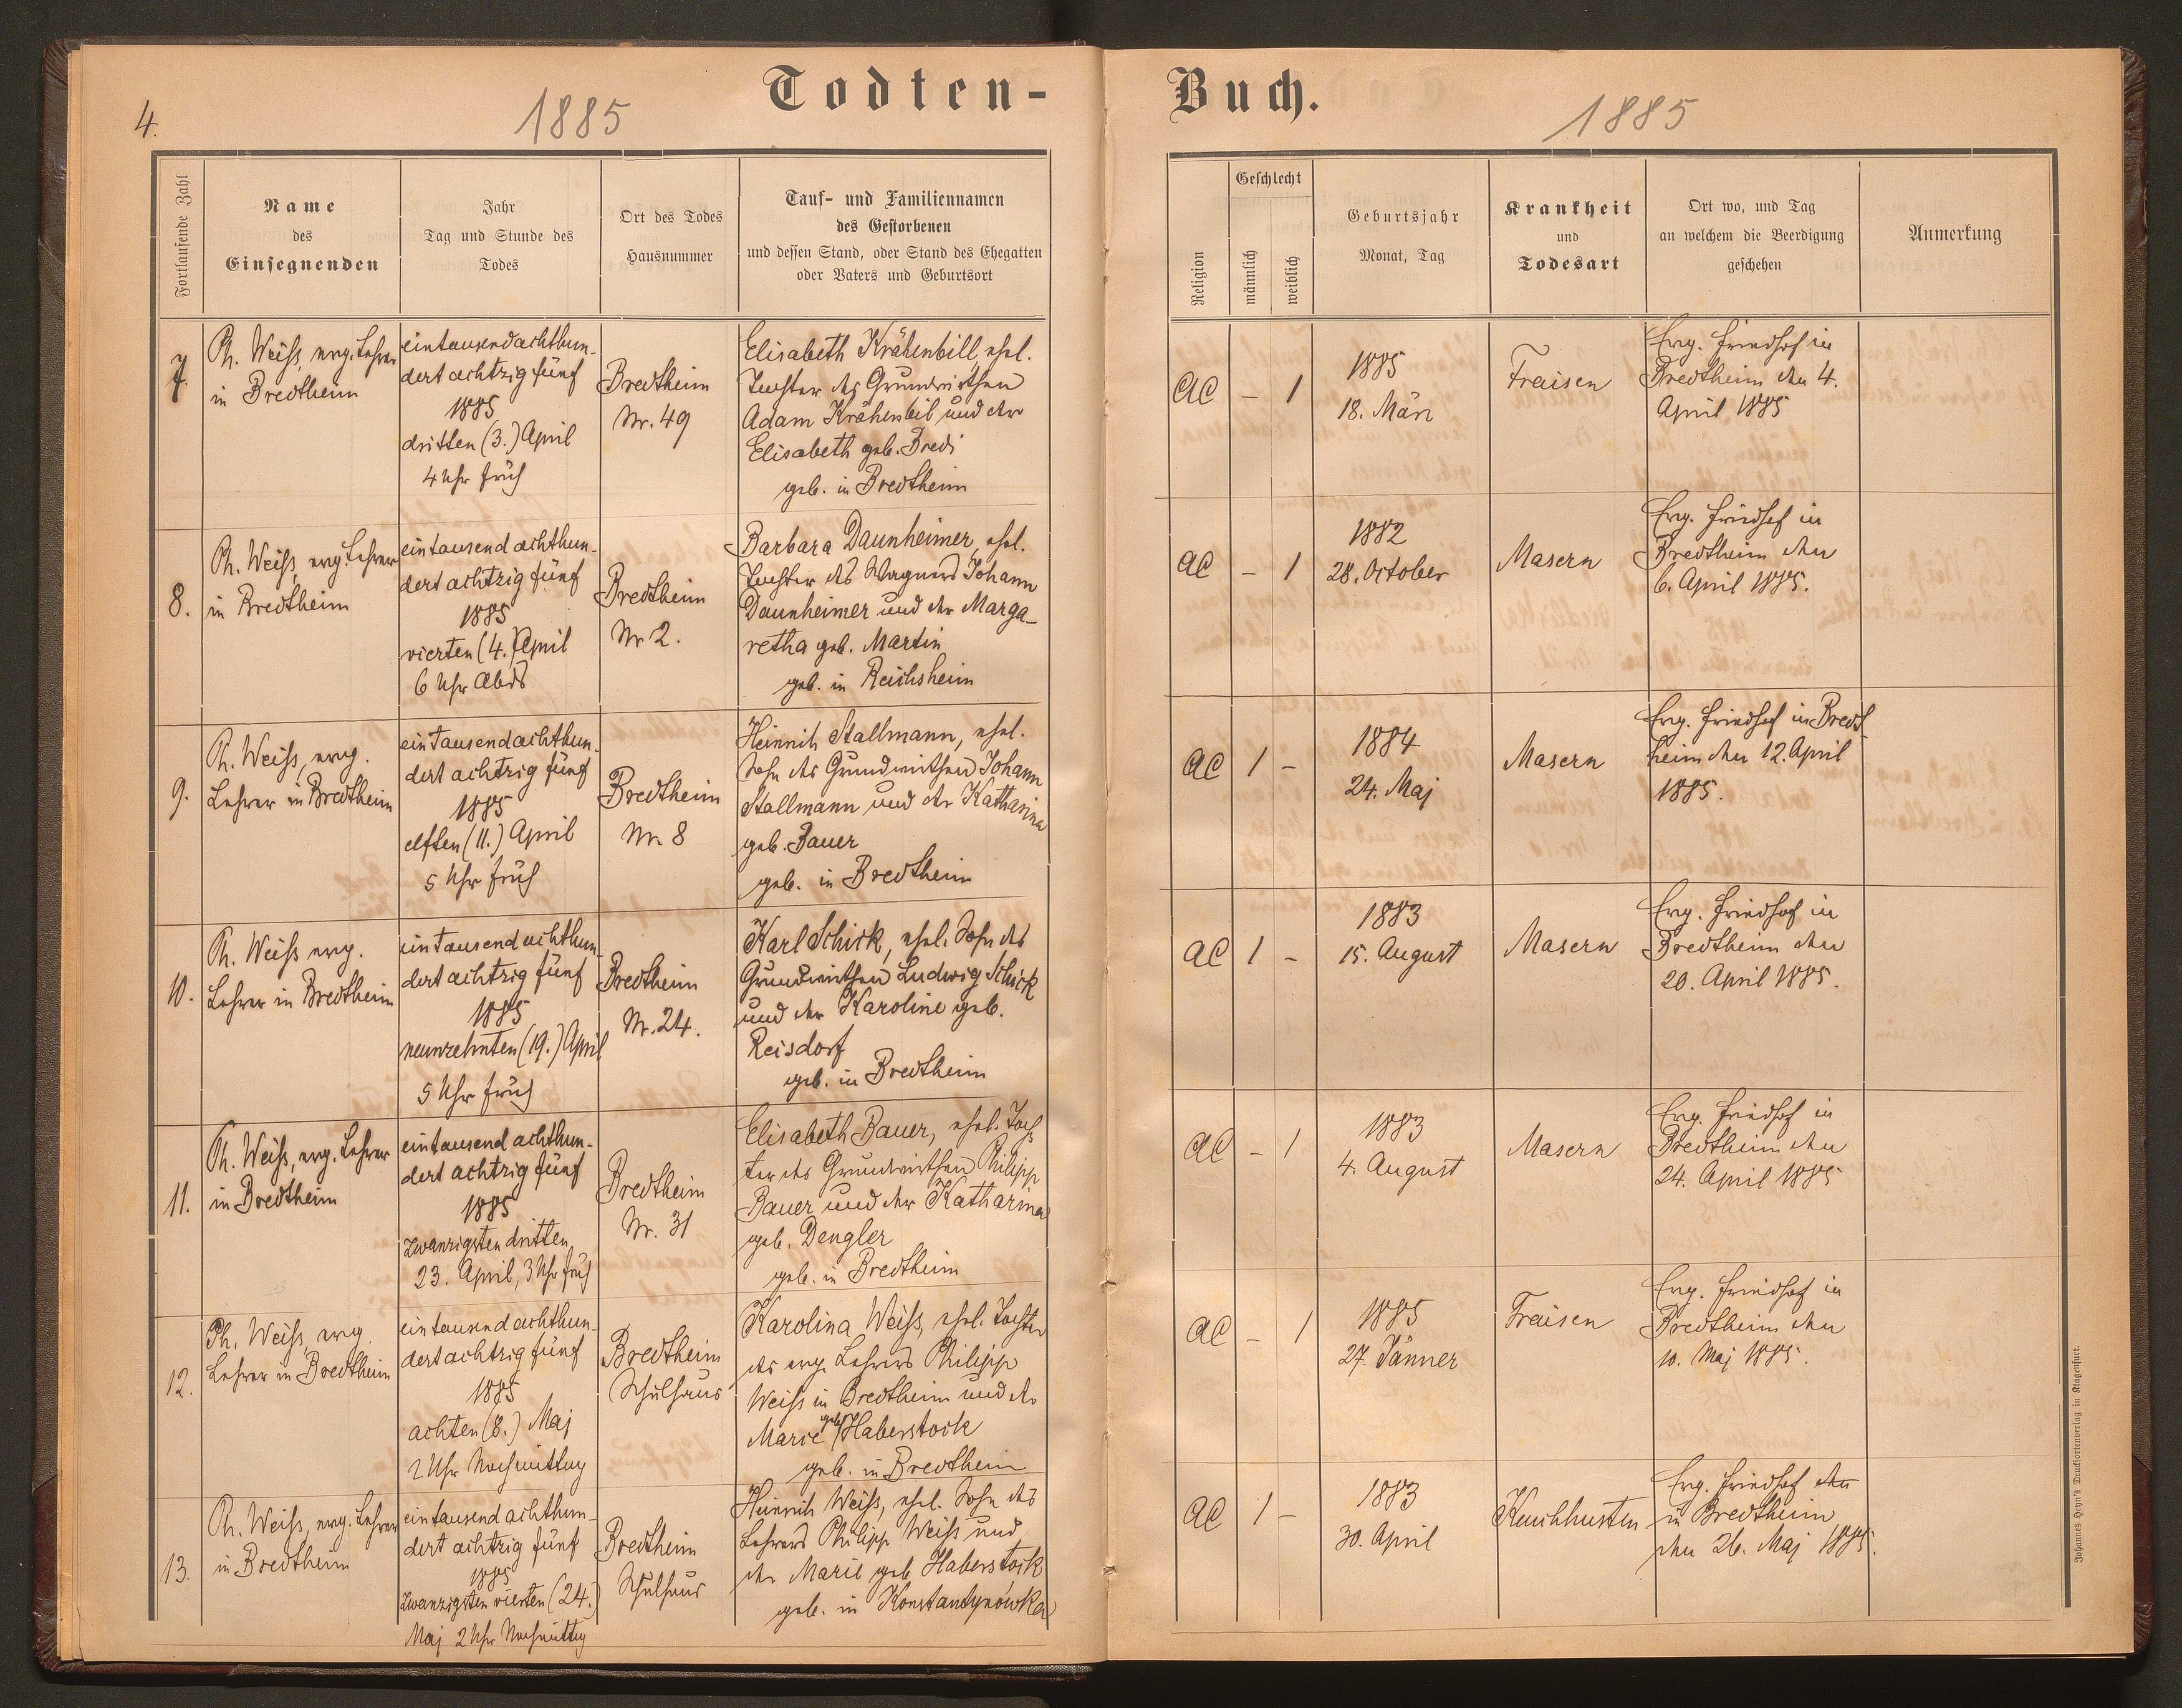 4.
1885
Todten-
Fortlaufende Zahl
Name
des
Einsegnenden
Jahr
Tag und Stunde des
Todes
Ort des Todes
Hausnummer
Tauf- und Familiennamen
des Gestorbenen
und dessen Stand, oder Stand des Ehegatten
oder Vaters und Geburtsort
7.
Ph. Weiss, evg. Lehrer
in Bredtheim
eintausendachthun-
dert achtzig fünf
1885
dritten (3.) April
4 Uhr früh
Bredtheim
Nr. 49
Elisabeth Krähenbill, ehel.
Tochter des Grundwirthen
Adam Krähenbil und der
Elisabeth geb. Bredi
geb. in Bredtheim
8.
Ph. Weiss, evg. Lehrer
in Bredtheim
eintausend achthun-
dert achtzig fünf
1885
vierten (4.) April
6 Uhr Abds
Bredtheim
Nr 2.
Barbara Daunheimer, ehel.
Tochter des Wagners Johann
Daunheimer und der Marga-
retha geb. Martin
geb. in Reichsheim
9.
Ph. Weiss, evg.
Lehrer in Bredtheim
ein tausendachthun-
dert achtzig fünf
1885
elften (11.) April
5 Uhr früh
Bredtheim
Nr 8
Heinrich Stallmann, ehel.
Sohn des Grundwirthen Johann
Stallmann und der Katharina
geb. Bauer
geb. in Bredtheim
10.
Ph. Weiss evg.
Lehrer in Bredtheim
ein tausend achthun-
dert achtzig fünf
1885
neunzehnten (19.) April
5 Uhr früh
Bredtheim
Nr. 24.
Karl Schick, ehel. Sohn des
Grundwirthen Ludwig Schick
und der Karoline geb.
Reisdorf
geb. in Bredtheim
11.
Ph. Weiss, evg. Lehrer
in Bredtheim
eintausend achthun-
dert achtzig fünf
1885
zwanzigsten dritten
23. April, 3 Uhr früh
Bredtheim
Nr. 31
Elisabeth Bauer, ehel. Toch-
ter des Grundwirthen Philipp
Bauer und der Katharina
geb. Dengler
geb. in Bredtheim
12.
Ph. Weiss, evg.
Lehrer in Bredtheim
ein tausend achthun-
dert achtzig fünf
1885
achten (8.) Maj
2 Uhr Nachmittag
Bredtheim
Schulhaus
Karolina Weiss, ehel. Tochter
des evg. Lehrers Philipp
Weiss in Bredtheim und der
Marie geb. Haberstock
geb. in Bredtheim
13.
Ph. Weiss, evg. Lehrer
in Bredtheim
eintausend achthun-
dert achtzig fünf
1885
zwanzigsten vierten (24.)
Maj 2 Uhr Nachmittag
Bredtheim
Schulhaus
Heinrich Weiss, ehel. Sohn des
Lehrers Philipp Weiss und
der Marie geb Haberstock
geb. in Konstantynówka
Buch.
1885
Religion
Geschlecht
männlich
weiblich
Geburtsjahr
Monat, Tag
Krankheit
und
Todesart
Ort wo, und Tag
an welchem die Beerdigung
geschehen
Anmerkung
AC
-
1
1885
18. März
Fraisen
Evg. Friedhof in
Bredtheim den 4.
April 1885
AC
-
1
1882
28. October
Masern
Evg. Friedhof in
Bredtheim den
6. April 1885.
AC
1
-
1884
24. Maj
Masern
Evg. Friedhof in Bredt-
heim den 12. April
1885.
AC
1
-
1883
15. August
Masern
Evg. Friedhof in
Bredtheim den
20. April 1885.
AC
-
1
1883
4. August
Masern
Evg. Friedhof in
Bredtheim den
24. April 1885
AC
-
1
1885
27. Jänner
Fraisen
Evg. Friedhof in
Bredtheim den
10. Maj 1885.
AC
1
-
1883
30. April
Keuchhusten
Evg. Friedhof den
in Bredtheim
den 26. Maj 1885.
Johannes Heyn's Drucksortenverlag in Klagenfurt.